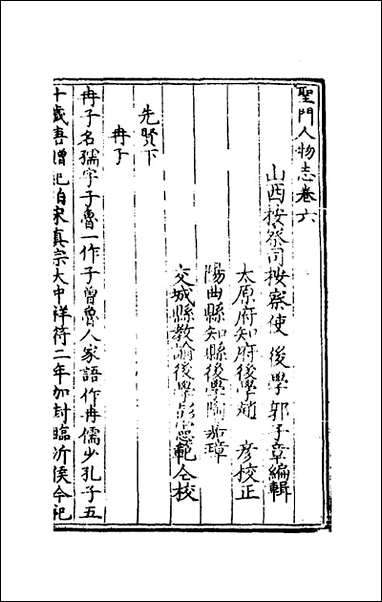 聖門人物志卷六
山西按察司按察使後學郭子章編輯
太原府知府後學趙彥校正
陽曲縣知縣後學陶嘉璋
交城縣教諭後學彭憲範仝校
先賢下
冉子
冉子名孺字子魯一作子曾魯人家語作冉儒少孔子五
十歲吾贈紀伯宋真宗大中祥符二年加封臨沂侯今祀